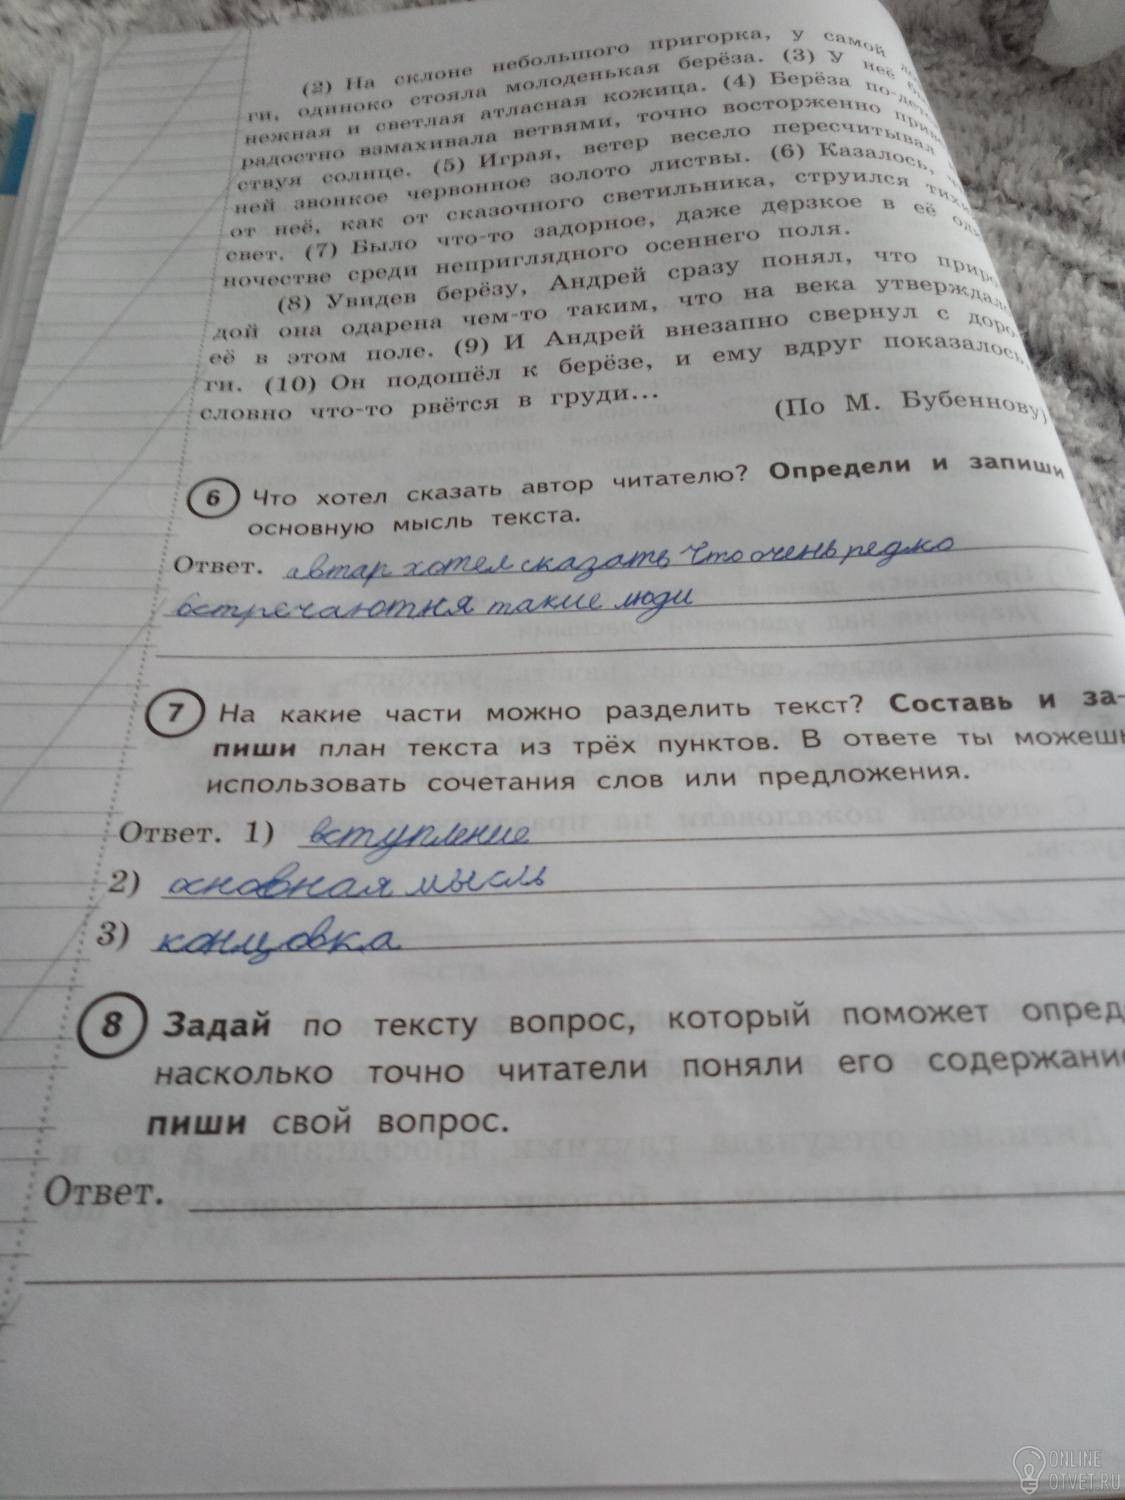 (2) На склоне небольшого пригорка, у самой
ги, одиноко стояла молоденькая берёза. (3) У неё
нежная и светлая атласная кожица. (4) Берёза по-дет
радостно взмахивала ветвями, точно восторженно
ствуя солнце. (5) Играя, ветер весело пересчитывал
ней звонкое червонное золото листвы. (6) Казалось,
от неё, как от сказочного светильника, струился тих
свет. (7) Было что-то задорное, даже дерзкое в её од
ночестве среди неприглядного осеннего поля.
(8) Увидев берёзу, Андрей сразу понял, что приро
дой она одарена чем-то таким, что на века утверждал
её в этом поле. (9) И Андрей внезапно свернул с доро
ги. (10) Он подошёл к берёзе, и ему вдруг показалось,
словно что-то рвётся в груди...
(По М. Бубеннову)
6 Что хотел сказать автор читателю? Определи и запиши
основную мысль текста.
Ответ. автар хотел сказать что очень редко
встречаютня такие люди
7 На какие части можно разделить текст? Составь и за-
пиши план текста из трёх пунктов. В ответе ты можешь
использовать сочетания слов или предложения.
Ответ. 1) вступление
2) основная мысль
3) концовка
8 Задай по тексту вопрос, который поможет опред
насколько точно читатели поняли его содержание
пиши свой вопрос.
Ответ.
ONLINE
OTVET.RU